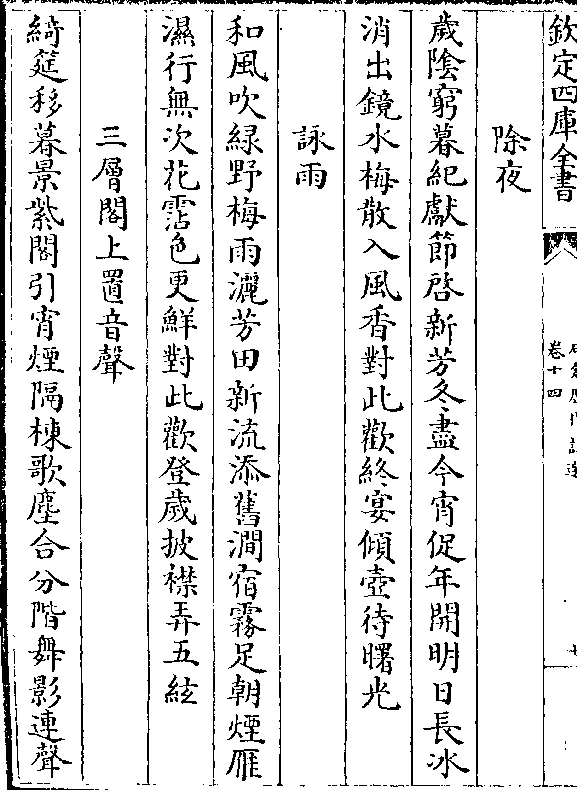 欽定四庫全書
卷十四
除夜
歲陰窮暮紀獻節啓新芳冬盡今宵促年開明日長冰
消出鏡水梅散入風香對此歡終宴傾壺待曙光
詠雨
和風吹緑野梅雨灑芳田新流添舊澗宿霧足朝煙雁
濕行無次花霑色更鮮對此歡登歲披襟弄五絃
三層閣上置音聲
綺筵移暮景紫閣引宵煙隔棟歌塵合分階舞影連聲